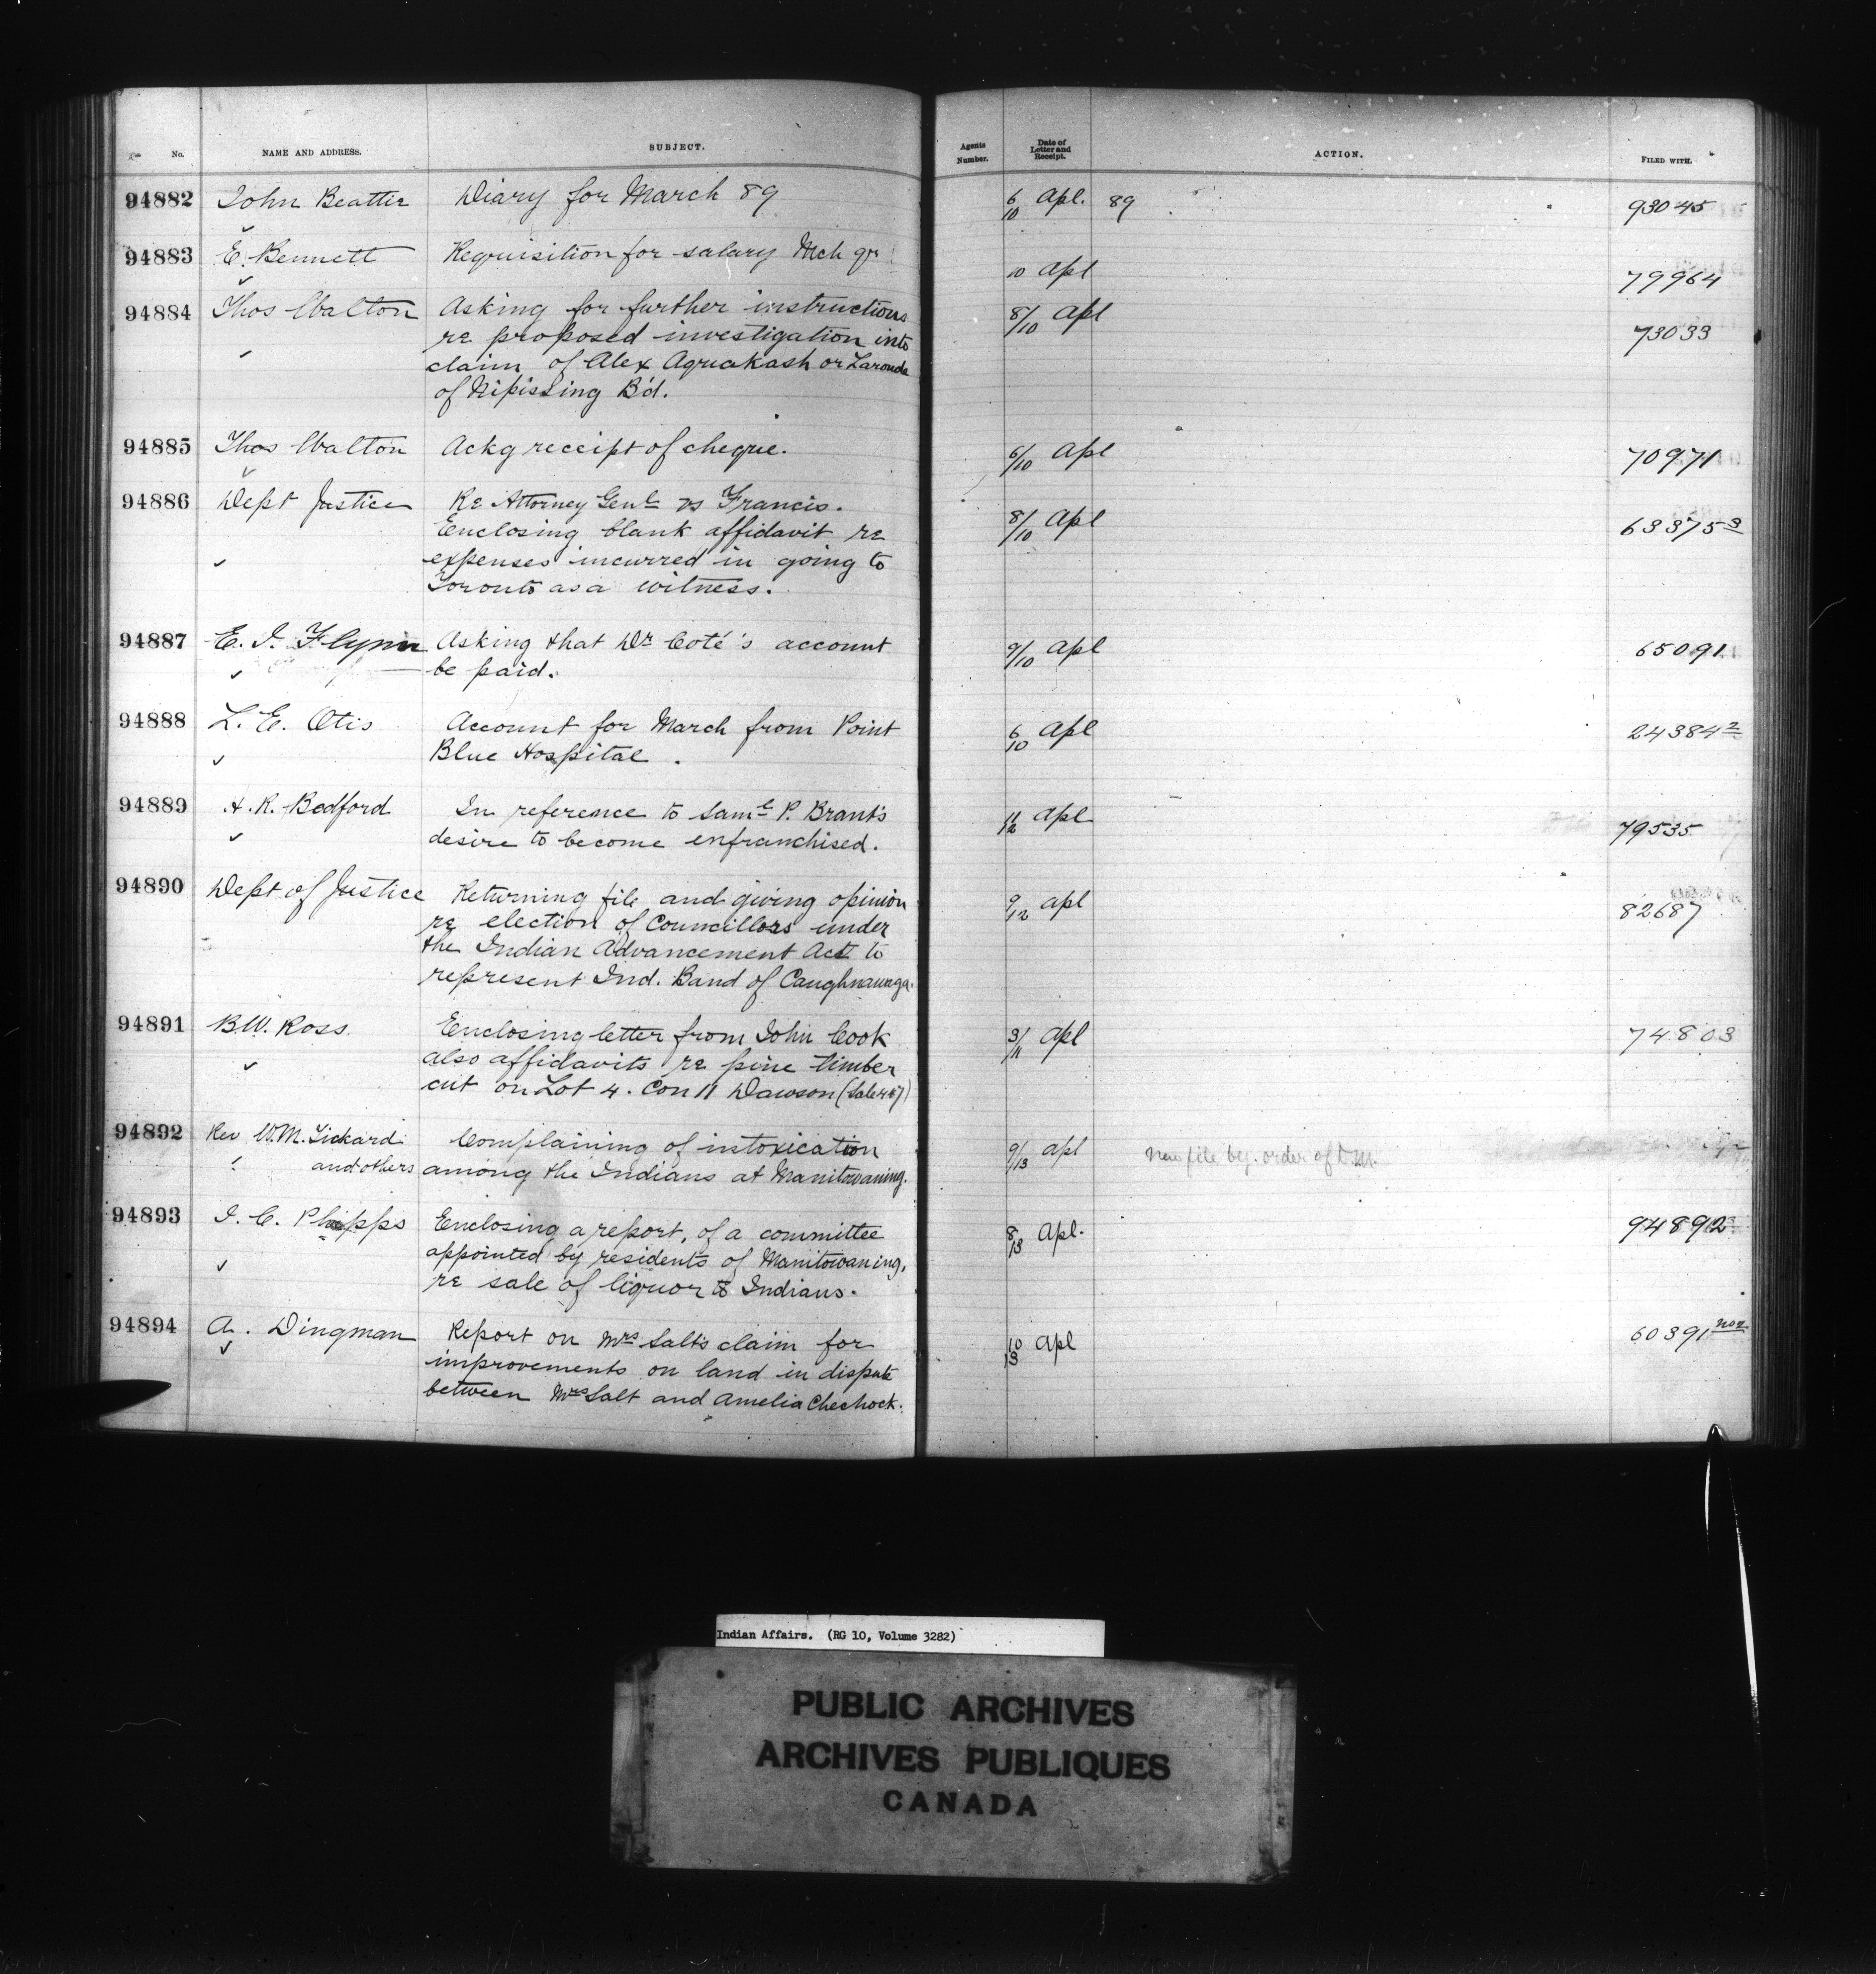 No. NAME AND ADDRESS. SUBJECT. Agents Number. Date of Letter and Receipt. ACTION. FILED WITH.
94882 John Beattie Diary for March 89 6/10 Apl. 89 93045
94883 E. Bennett Requisition for salary Mch qr 10 Apl 79964
94884 Thos Walton Asking for further instructions 8/10 Apl 73033
re proposed investigation into
claim of Alex Aguakash or Laronde
of Nipissing B'd.
94885 Thos Walton Ackg receipt of cheque. 6/10 Apl 70971
94886 Dept Justice Re Attorney Genl vs Francis. 8/10 Apl 63375-3
Enclosing blank affidavit re
expenses incurred in going to
Toronto as a witness.
94887 E. J. Flynn Asking that Dr Coté's account 9/10 Apl 65091
be paid.
94888 L. E. Otis Account for March from Point 6/10 Apl 24384-2
Blue Hospital.
94889 A. R. Bedford In reference to Saml P. Brant's 11/12 Apl 79535
desire to become enfranchised.
94890 Dept of Justice Returning file and giving opinion 9/12 Apl 82687
re election of Councillors under
the Indian Advancement Act to
represent Ind. Band of Caughnawaga.
94891 B.W. Ross Enclosing letter from John Cook 3/11 Apl 74803
also affidavits re pine timber
cut on Lot 4. Con 11 Dawson (Sale
94892 Rev W.M. and others Complaining of intoxication 9/13 Apl New file by order of D.M.
among the Indians at Manitowaning.
94893 J. C. Phipps Enclosing a report, of a committee 8/13 Apl. 94892
appointed by residents of Manitowaning,
re sale of liquor to Indians.
94894 A. Dingman Report on Mrs Salt's claim for 10/13 Apl 60391
improvements on land in dispute
between Mrs Salt and Amelia Chechock.
Indian Affairs. (RG 10, Volume 3282)
PUBLIC ARCHIVES
ARCHIVES PUBLIQUES
CANADA